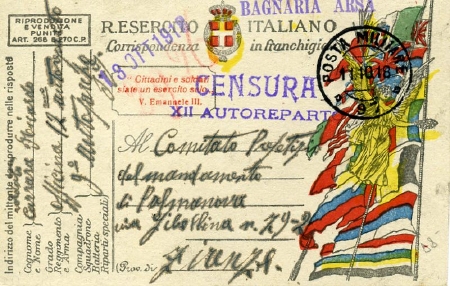 RIPRODUZIONE
E VENDITA
PUNITE
ART. 268 E 270 C.P.
R. ESERCITO ITALIANO
Corrispondenza in franchigia
BAGNARIA ARSA
18 OTT 1918
« Cittadini e soldati
siate un esercito solo »
V. Emanuele III.
CENSURA
XII AUTOREPARTO
POSTA MILITARE
Indirizzo del mittente da riprodurre nelle risposte
Cognome
e Nome
Grado
Reggimento
e Arma
Compagnia
Squadrone
Batteria
Riparti speciali
Officina 12°
Al Comitato
del mandamento
di Palmanova
via Gibellina n. 79-2
(Prov. di
Firenze